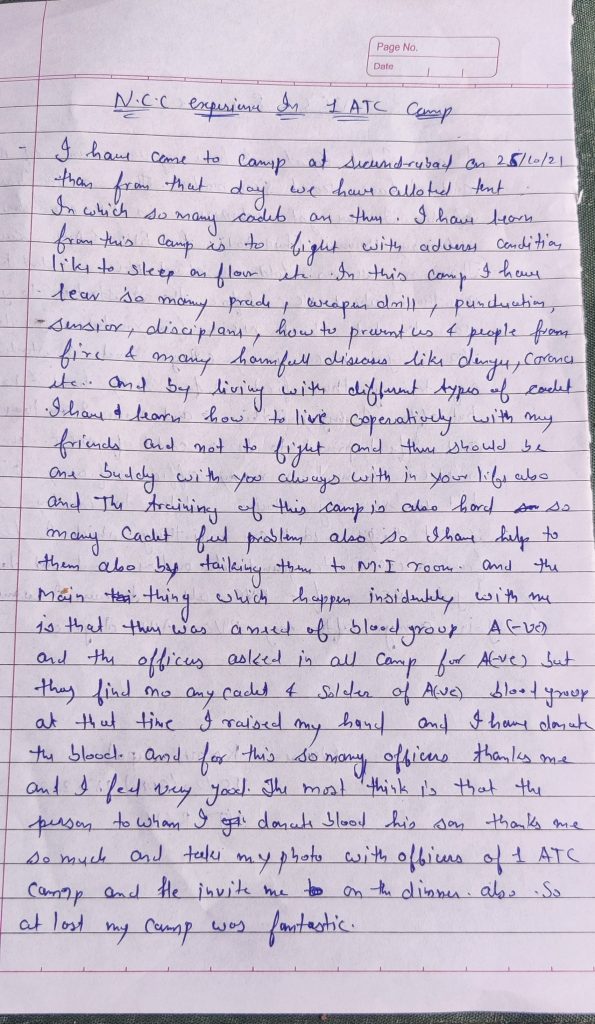 Page No.
Date
N.C.C experience In 1 ATC Camp
- I have come to camp at secundrabad on 25/10/21
than from that day we have alloted tent
In which so many cadets are there. I have learn
from this camp is to fight with advers condition
like to sleep on floor etc. In this camp I have
lear so many prade, weapon drill, punduation,
sension, disciplans, how to prevent us & people from
fire & many harmfull diseases like dengu, Corona
etc.. and by living with different types of cadet
I have learn how to live coperatively with my
friends and not to fight and there should be
one buddy with you always with in your life also
and The training of this camp is also hard so
many Cadet feel problem also so I have help to
them also by taiking them to M.I room. and the
Main thing which happen insidently with me
is that there was a need of blood group A(-ve)
and the officers asked in all camp for A(-ve) but
they find no any cadet & Solder of A(-ve) blood group
at that time I raised my hand and I have donate
the blood. and for this so many officers thanks me
and I feel very good. The most think is that the
person to whom I donate blood his son thanks me
so much and take my photo with officers of 1 ATC
Camp and He invite me on the dinner. also. So
at last my camp was fantastic.